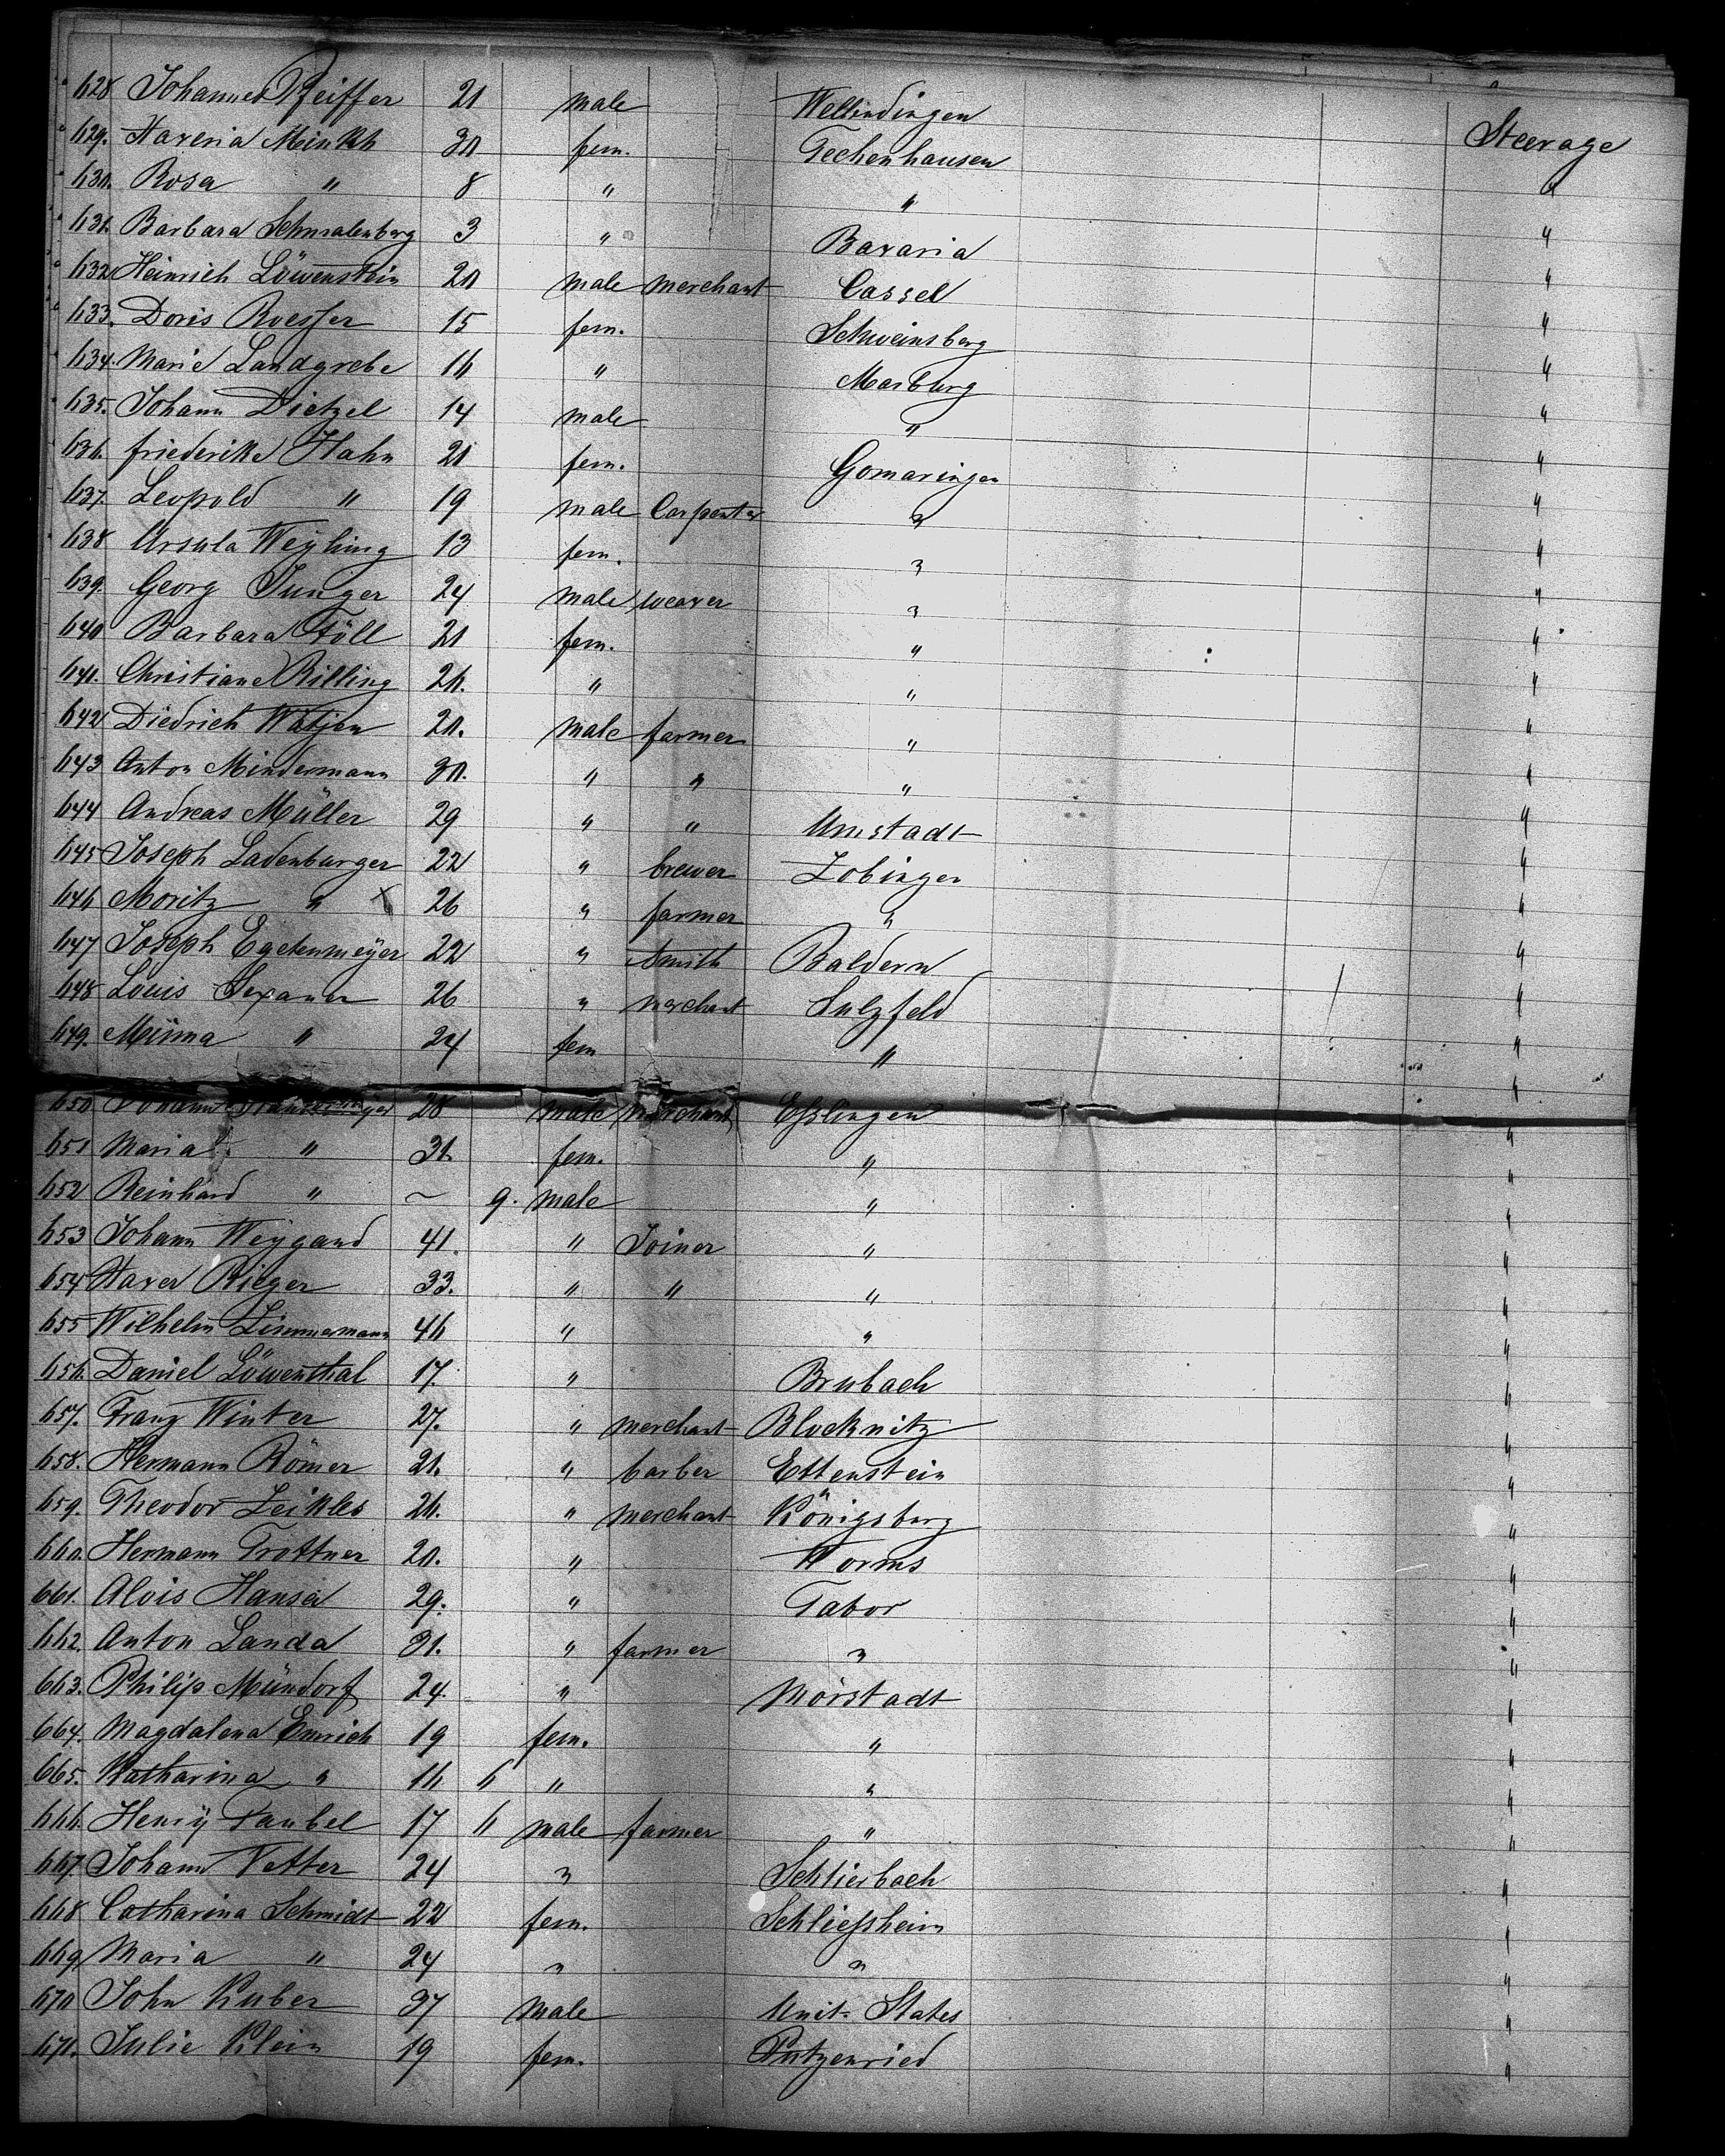 628 Johannes Pfeiffer 21 male Wellendingen Steerage
629. Xaveria Minkh 30 fem. Techenhausen "
630. Rosa " 8 " " "
631. Barbara Schmalenberg 3 " Bavaria "
632 Heinrich Löwenstein 20 male merchant Cassel "
633. Doris Roesser 15 fem. Schweinsberg "
634. Marie Landgrebe 16 " Marburg "
635. Johann Dietzel 14 male " "
636. friederike Hahn 21 fem. Gomaringen "
637. Leopold " 19 male Carpenter " "
638 Ursula Weyhing 13 fem. " "
639. Georg Junger 24 male weaver " "
640 Barbara Föll 21 fem. " "
641. Christiane Billing 20. " " "
642 Diedrich Wätjen 20. male farmer " "
643 Anton Mindermann 30. " " " "
644 Andreas Müller 29 " " Umstadt "
645 Joseph Ladenburger 22 " brewer Zobingen "
646 Moritz " x 26 " farmer " "
647 Joseph Egetenmeÿer 22 " Smith Baldern "
648 Louis Sexauer 26 " merchant Sulzfeld "
649. Minna " 24 fem " "
650 Johann 28 male merchant Eßlingen "
651 Maria " 31. fem. " "
652 Reinhard " ~ 9. male " "
653 Johann Weygand 41. " Joiner " "
654 Xaver Rieger 33. " " " "
655 Wilhelm Zimmermann 46 " " "
656. Daniel Löwenthal 17. " Brubach "
657. Franz Winter 27. " merchant Blocknitz "
658. Hermann Römer 21. " barber Ettenstein "
659. Theodor Zeikles 26. " merchant Königsberg "
660. Hermann Trottner 20. " Worms "
661. Alois Hansa 29. " Tabor "
662. Anton Landa 31. " farmer " "
663. Philip Mündorf 24. " Mörstadt "
664. Magdalena Emrich 19 fem. " "
665. Katharina " 16 6 " " "
666. Henrÿ Taubel 17 6 male farmer " "
667. Johann Vetter 24 " Schlierbach "
668 Catharina Schmidt 22 fem. Schließheim "
669 Maria " 24 " " "
670 John Kuber 37 male Unit. States "
671. Julie Klein 19 fem. Putzenried "